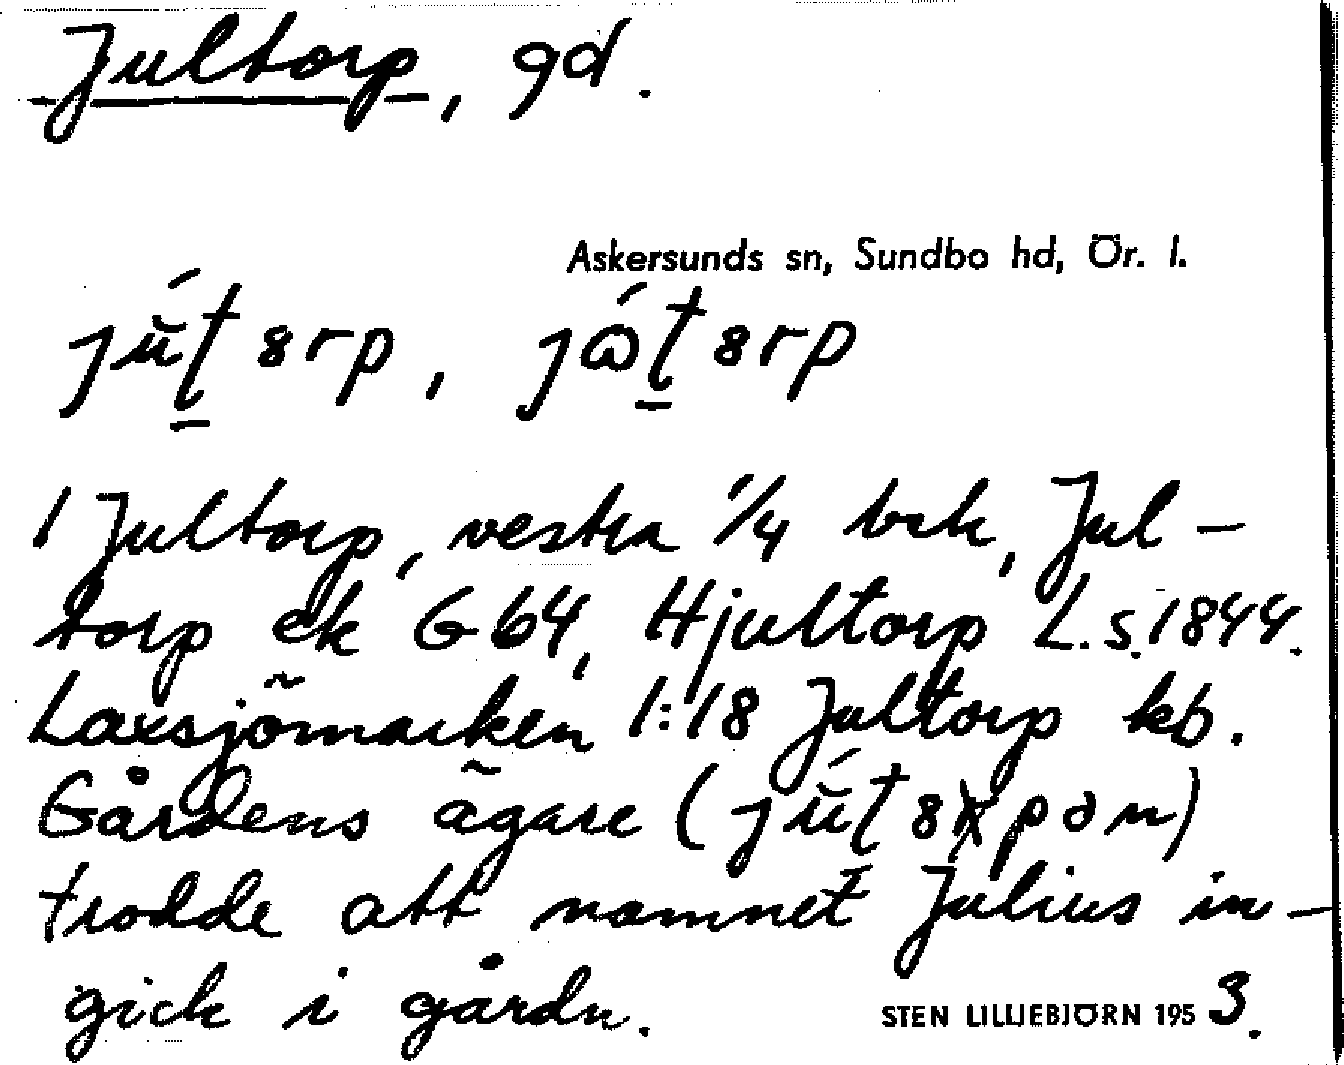 Jultorp, gd.
Askersunds sn, Sundbo hd, Ör. l.
1 Jultorp, vestra 1/4 bek, Jul-
torp ek G 64, Hjultorp L.s. 1844.
Laxsjömarken 1:18 Jultorp kb.
Gårdens ägare
trodde att namnet Julius in-
gick i gårdn.
STEN LILLIEBJÖRN 1953.